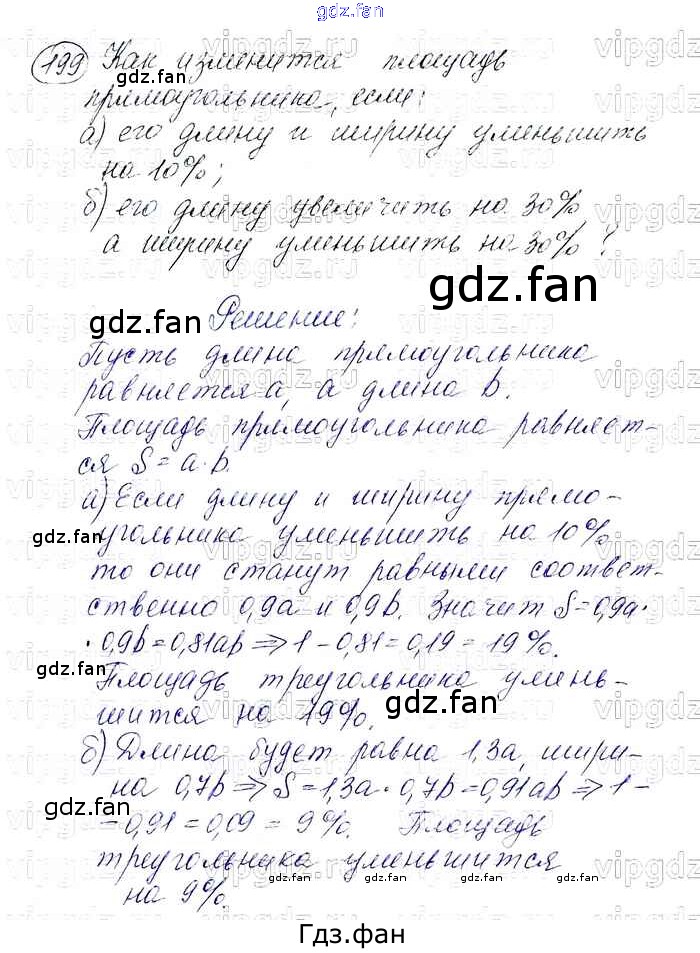 gdz.fan
199 Как изменится площадь
gdz.fan
прямоугольника, если:
а) его длину и ширину уменьшить
на 10%;
б) его длину увеличить на 30%
а ширину уменьшить на 30%?
gdz.fan
gdz.fan
Решение:
Пусть длина прямоугольника
равняется a, а длина b.
Площадь прямоугольника равняет-
ся S = a·b.
а) Если длину и ширину прямо-
угольника уменьшить на 10%,
gdz.fan
то они станут равными соответ-
ственно 0,9a и 0,9b. Значит S = 0,9a·
·0,9b = 0,81ab ⇒ 1 - 0,81 = 0,19 = 19%.
gdz.fan
Площадь треугольника умень-
шится на 19%.
gdz.fan
б) Длина будет равна 1,3a, шири-
на 0,7b ⇒ S = 1,3a · 0,7b = 0,91ab ⇒ 1 -
gdz.fan
- 0,91 = 0,09 = 9%. Площадь
треугольника уменьшится
на 9%.
gdz.fan
gdz.fan
gdz.fan
Гдз.фан